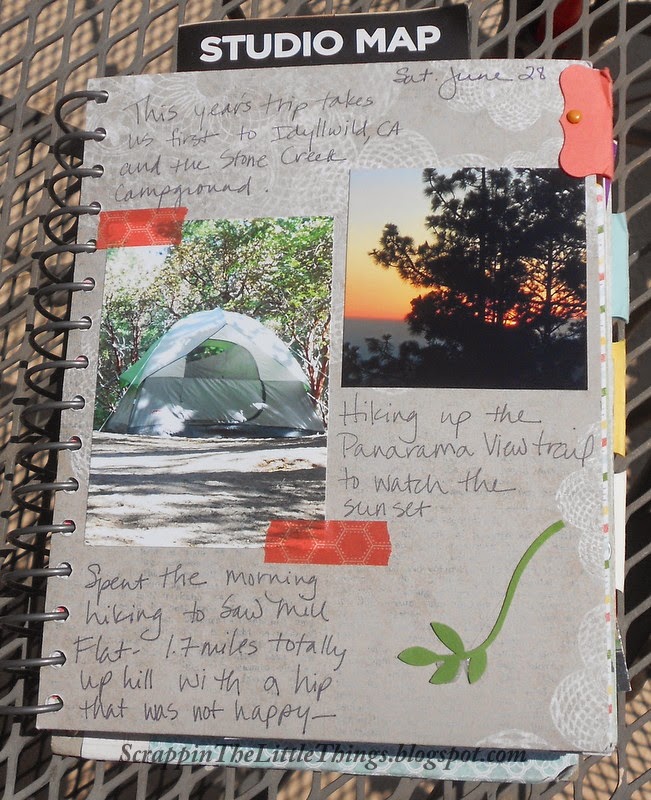 STUDIO MAP
Sat. June 28
This year's trip takes
us first to Idyllwild, CA
and the Stone Creek
Campground.
Hiking up the
Panarama View trail
to watch the
sunset
Spent the morning
hiking to Saw Mill
Flat - 1.7 miles totally
up hill with a hip
that was not happy—
ScrappinTheLittleThings.blogspot.com